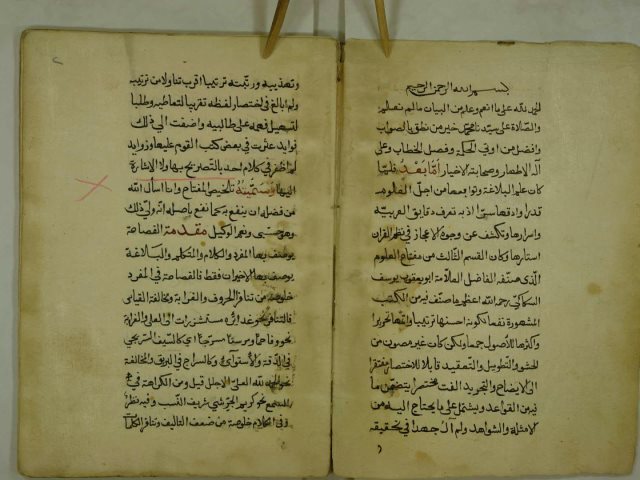 بسم الله الرحمن الرحيم
الحمد لله على ما انعم وعلم من البيان مالم نعلم
والصلاة على سيدنا محمد خير من نطق بالصواب
وافضل من اوتي الحكمة وفصل الخطاب وعلى
آله الاطهار وصحابته الاخيار اما بعد فلما
كان علم البلاغة وتوابعها من اجل العلوم
قدرا وادقها سرا اذ به تعرف دقايق العربية
واسرارها وتكشف عن وجوه الاعجاز في نظم القران
استارها وكان القسم الثالث من مفتاح العلوم
الذي صنفه الفاضل العلامة ابو يعقوب يوسف
السكاكي رحمه الله اعظم ما صنف فيه من الكتب
المشهورة نفعا لكونه احسنها ترتيبا واتمها تحريرا
واكثرها للاصول جمعا ولكن كان غير مصون من
الحشو والتطويل والتعقيد قابلا للاختصار مفتقرا
الى الايضاح والتجريد الفت مختصرا يتضمن ما
فيه من القواعد ويشتمل على ما يحتاج اليه من
الامثلة والشواهد ولم آل جهدا في تحقيقه
وتهذيبه ورتبته ترتيبا اقرب تناولا من ترتيبه
ولم ابالغ في اختصار لفظه تقريبا لتعاطيه وطلبا
لتسهيل فهمه على طالبيه واضفت الى ذلك
فوايد عثرت في بعض كتب القوم عليها وزوايد
لم اظفر في كلام احد بالتصريح بها ولا الاشارة
اليها وسميته تلخيص المفتاح وانا اسأل الله
من فضله ان ينفع به كما نفع باصله انه ولي ذلك
وهو حسبي ونعم الوكيل مقدمة الفصاحة
يوصف بها المفرد والكلام والمتكلم والبلاغة
يوصف بها الاخيران فقط فالفصاحة في المفرد
خلوصه من تنافر الحروف والغرابة ومخالفة القياس
فالتنافر نحو غدائره مستشزرات الى العلى والغرابة
نحو وفاحما ومرسنا مسرجا اي كالسيف السريجي
في الدقة والاستواء وكالسراج في البريق والمخالفة
نحو الحمد لله العلي الاجلل قيل ومن الكراهة في
السمع نحو كريم الجرشي شريف النسب وفيه نظر
وفي الكلام خلوصه من ضعف التاليف وتنافر الكلمات